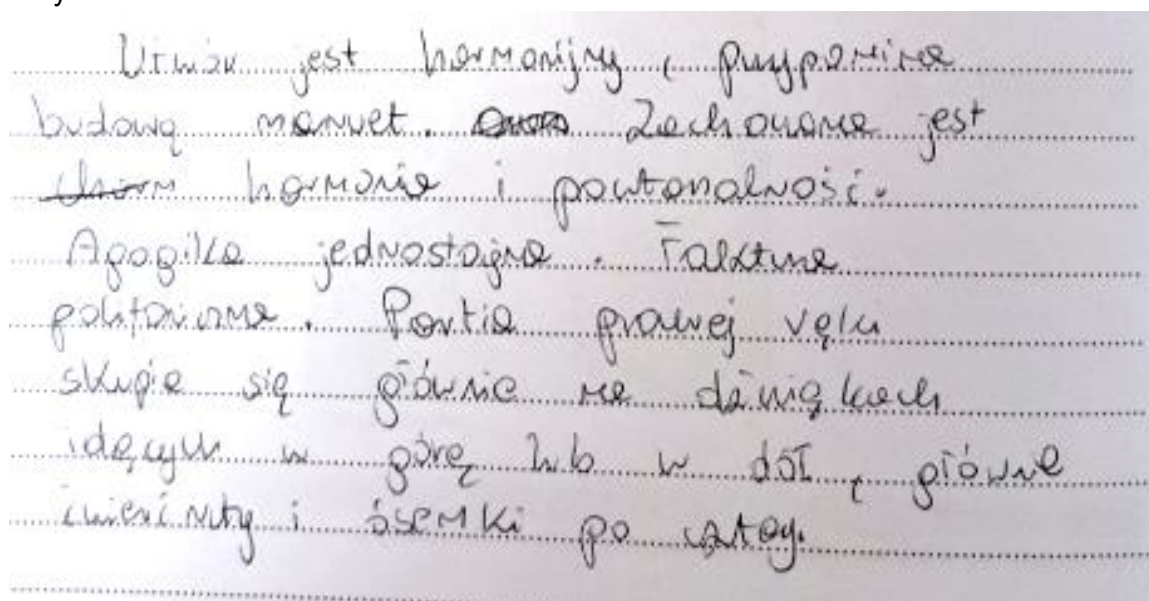 Utwór jest harmonijny, przypomina
budową menuet. Zachowana jest
harmonia i pontonalność.
Agogika jednostajna. Faktura
polifoniczna. Partia prawej ręki
skupia się głównie na dźwiękach
idących w górę lub w dół, głównie
ćwierćnuty i ósemki po cztery.